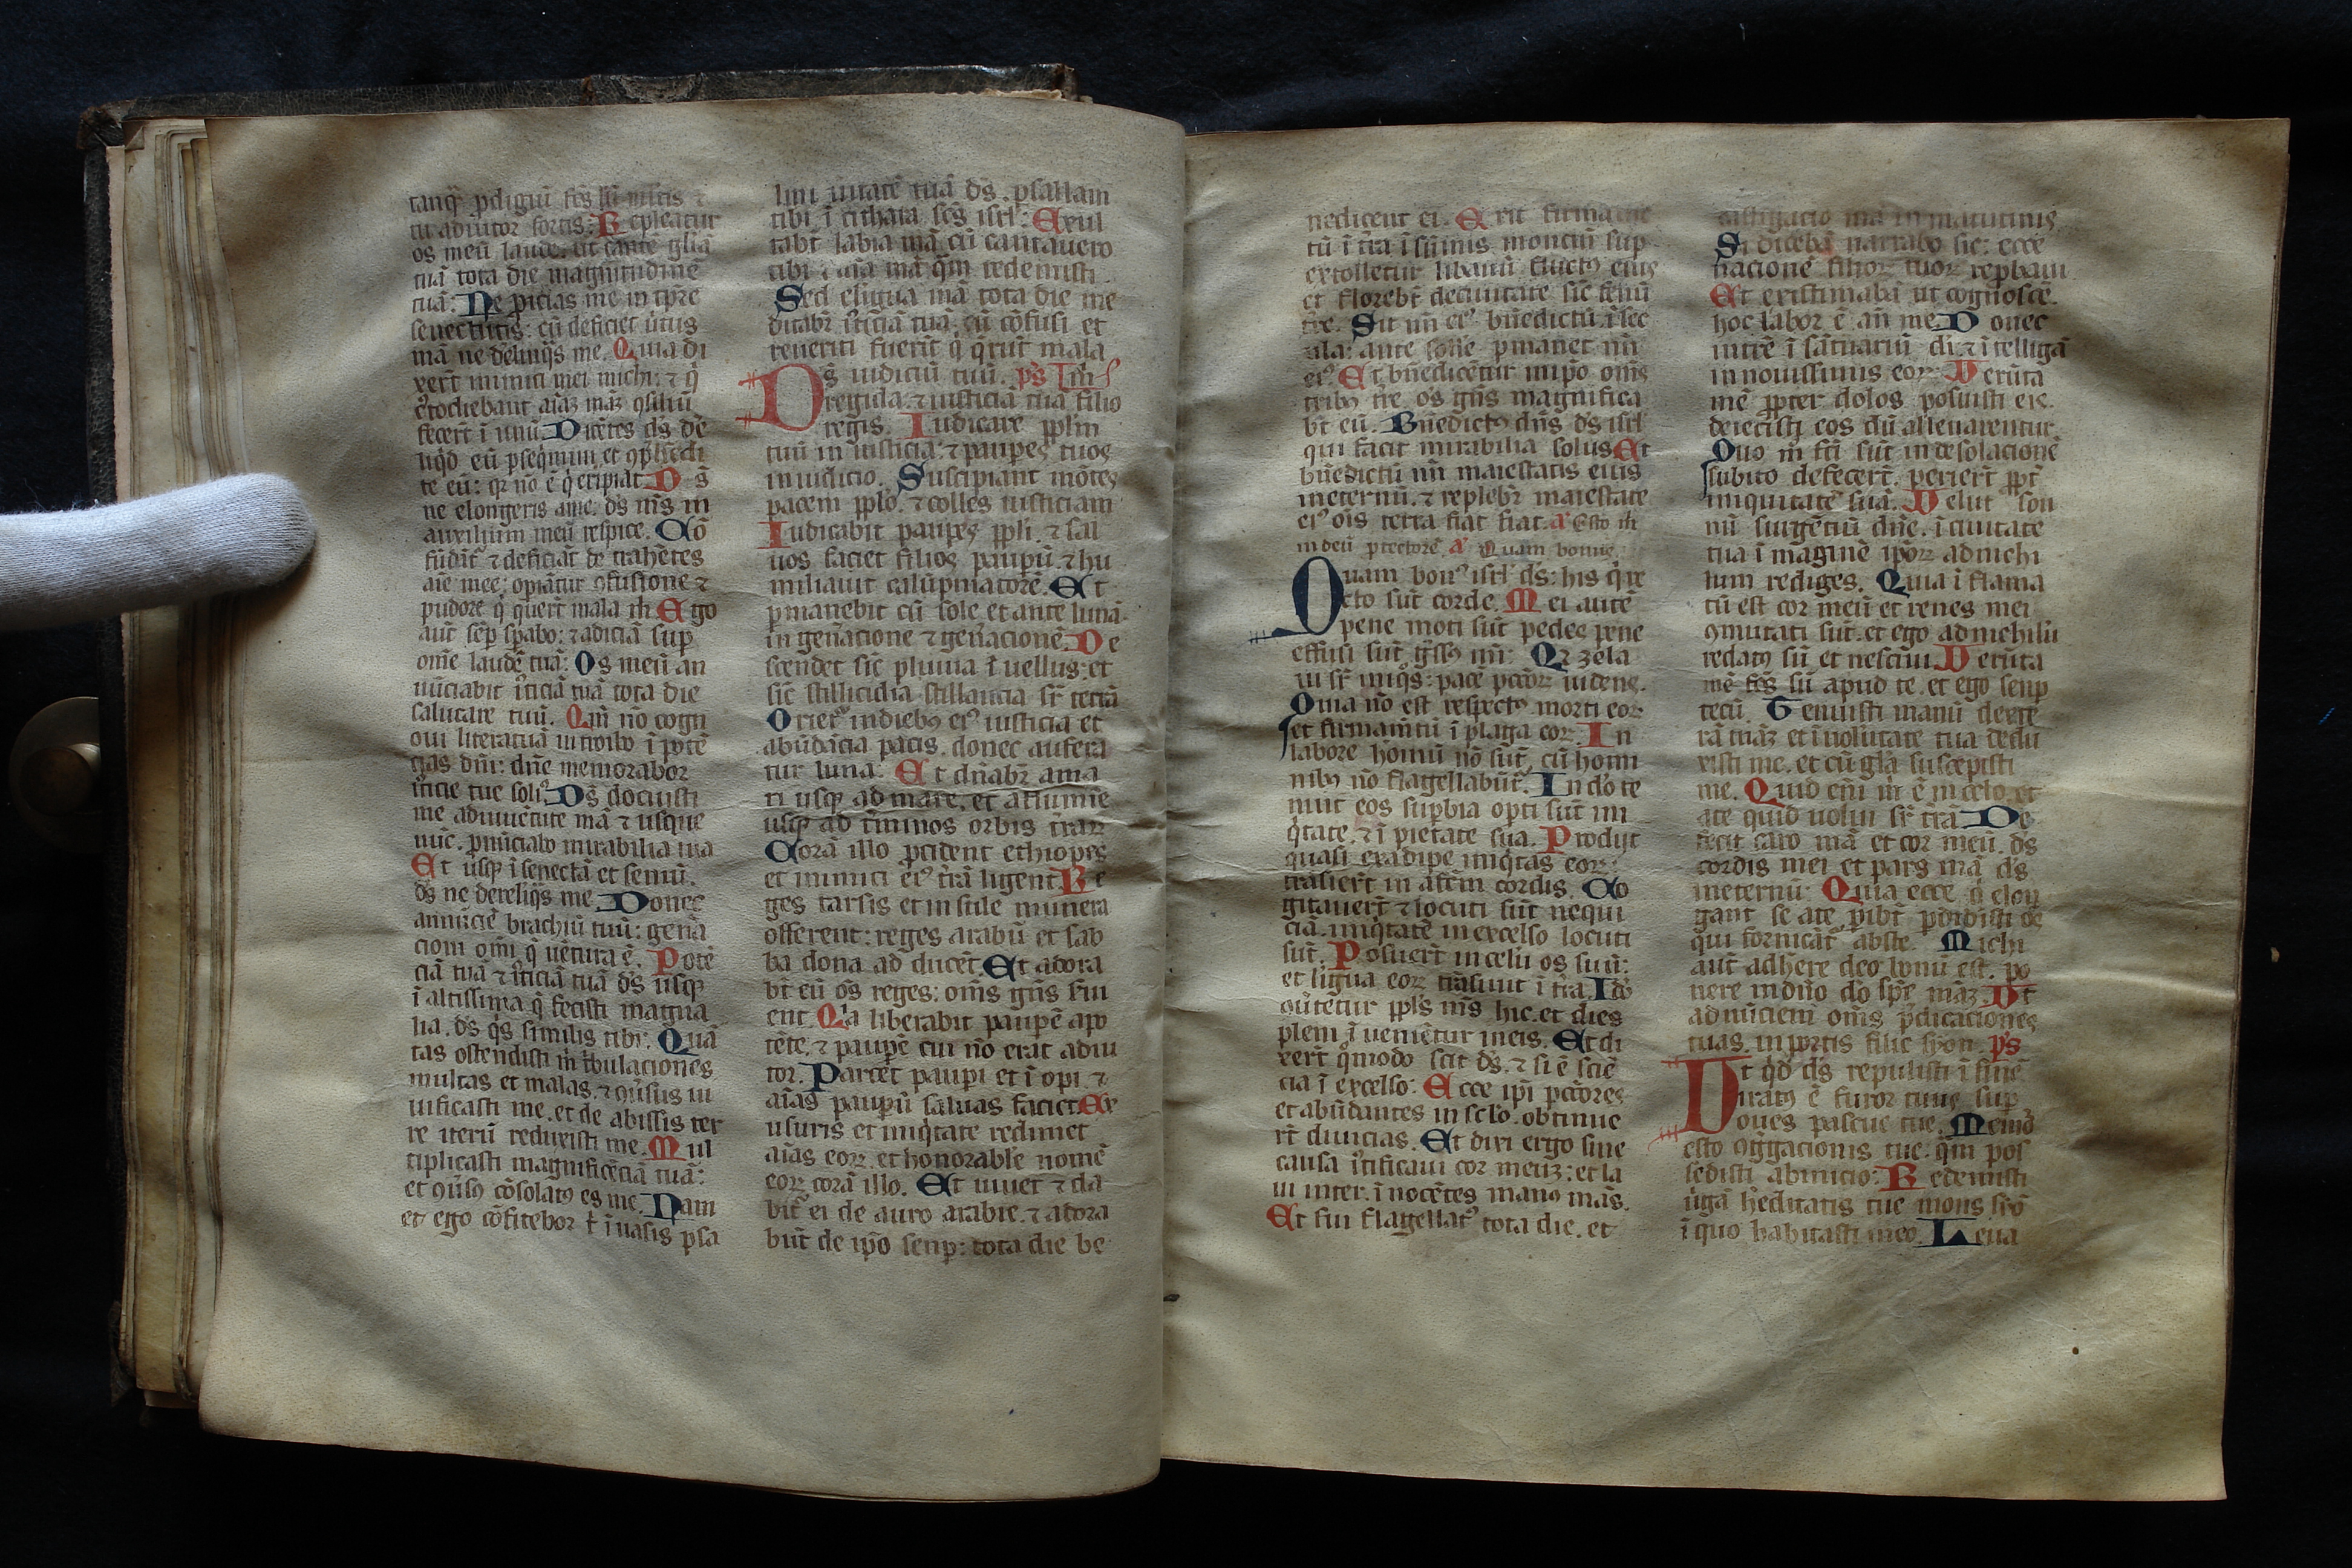 tanq̄ pdigiū fc̄s sū mltis ⁊
tu adiutor fortis: Repleatur
os meū laude. ut cante glīa
tuā tota die magnitudinē
tuā: Ne p̄icias me in tp̄re
senectutis: cū deficiet ůtus
mā ne delinq̄s me. Quia di
xert̄ inimici mei michi: ⁊ q̄
c̄todiebant aīaz māz ꝯsiliū
fecert̄ ī unū Dicētes ds̄ de
liq̄d eū pseq̄mini et ꝯphēdi
te eū: qr nō ē q̄ eripiat. Ds̄
ne elongeris ame. ds̄ ms̄ in
auxilium meū respice. Cō
fūdāt̄ ⁊ deficiāt de trahētes
aīe mee: opiātur ꝯfusione ⁊
pudore q̄ quert̄ mala m̄ Ego
aut̄ sēp spabo: ⁊ adiciā sup
om̄e laudē tuā: Os meū an
nūciabit ůticiā tuā tota die
salutare tuū. Qm̄ nō cogn
oui literaturā introibo ī potē
tias dnī: dn̄e memorabor
ůticie tue soliꝰ Ds̄ docuisti
me aduuētute mā ⁊ usque
nūc. pnūciabo mirabilia tua
Et usq ī senectā et seniū.
ds̄ ne dereliq̄s me Donec
annūciē brachiū tuū: genā
cioni om̄i q̄ uētura ē. Potē
ciā tuā ⁊ ůticiā tuā ds̄ usq
ī altissima q̄ fecisti magna
lia. ds̄ q̄s similis tibi: Quā
tas ostendisti m̄ tbulaciones
multas et malas. ⁊ ꝯūsus ui
uificasti me. et de abissis ter
re iterū reduxisti me. Mul
tiplicasti magnificēciā tuā:
et ꝯūsꝰ cōsolatꝰ es me. Nam
et ego cōfitebor t̄ ī uasis psa
lmi ůitatē tuā ds̄. psallam
tibi ī cithara. sc̄s isrl̄: Exul
tabt̄ labia mā cū cantauero
tibi ⁊ aīa mā q̄m redemisti.
Sed eligua mā tota die me
ditabr̄ ůticiā tuā: cū cōfusi et
reueriti fuerīt q̄ q̄rūt mala
Ds̄ iudiciū tuū. ps̄
regi da: ⁊ iusticiā tuā filio
regis. Iudicare pplm
tuū in iusticia: ⁊ paupes tuos
in iudicio. Suscipiant mōtes
pacem pplo. ⁊ colles iusticiam
Iudicabit paupes ppli. ⁊ sal
uos faciet filios paupū. ⁊ hu
miliauit calūpniatorē. Et
pmanebit cū sole. et ante lunā.
in gen̄acione ⁊ gen̄acionē. De
scendet sic̄ pluuia ī uellus: et
sic̄ stillicidia stillancia sr̄ terrā
Orietꝰ indiebꝰ eiꝰ iusticia et
abūdācia pacis. donec aufera
tur luna: Et dn̄abr̄ ama
ri usq ad mare. et aflumīe
usq ad tm̄inos orbis trar̄
Corā illo pcident ethiopes
et inimici eiꝰ trā ligent Re
ges tarsis et insule munera
offerent: reges arabū et sab
ba dona ad ducēt. Et adora
bt̄ eū os̄ reges: om̄s gn̄s s̄ui
ent Qa liberabit paupē apo
tēte. ⁊ paupē cui nō erat adiu
tor. Parcet paupi et ī opi. ⁊
aīas paupū saluas faciet. Ex
usuris et iniq̄tate redimet
aīas eor̄. et honorable nomē
eor̄ corā illo. Et uiuet ⁊ da
bitꝰ ei de auro arabie. ⁊ adora
būt de ip̄o semp: tota die be
nedicent ei. Erit firmamē
tū ī tra ī sūmis montiū sup
extolletur libanū fructꝰ eius
et florebt̄ deciuitate sic̄ fenū
tre. Sit nm̄ eiꝰ bn̄edictū. ī sec
ula: ante solē pmanet nm̄
eiꝰ Et bn̄edicētur inip̄o om̄s
tribꝰ tre os̄ gn̄s magnifica
bt̄ eū. Bn̄edictꝰ dn̄s ds̄ isrl̄
qui facit mirabilia solus Et
bn̄edictū nm̄ maiestatis eius
ineternū. ⁊ replebr̄ maiestate
eiꝰ ois̄ terra fiat fiat. a Esto m̄
in deū ptectorē. a Quam bonus.
Quam bonꝰ isrl̄ ds̄: his q̄ re
cto sūt corde. Mei autē
pene moti sūt pedes pene
effusi sūt g̊ssꝰ mī: Qr zela
ui sr̄ iniq̊s: pacē pctōr̄ uidens.
Quia nō est respectꝰ morti eor̄
et firmam̄tū ī plaga eor̄. In
labore hoīnū nō sūt. cū homi
nibꝰ nō flagellabūt̄. Ido te
nuit eos supbia opti sūt ini
q̄tate. ⁊ ī pietate sua. Prodijt
quasi exadipe iniq̄tas eor̄:
trāsiert̄ in afēm cordis. Co
gitauert̄ ⁊ locuti sūt nequi
ciā. iniq̄tatē in excelso locuti
sūt. Posuert̄ in celū os suū:
et ligua eor̄ trāsiuit ī tra. Ido
ꝯūtetur ppls̄ ms̄ hic. et dies
pleni ī ueniētur ineis. Et di
xert̄ q̄modo scit ds̄. ⁊ si ē sciē
cia ī excelso: Ecce ip̄i pctōres
et abūdantes in sclo. obtinue
rt̄ diuicias. Et dixi ergo sine
causa ůtificaui cor meuz: et la
ui inter. ī nocētes manꝰ mās.
Et fui flagellatꝰ tota die. et
castigacio mā in matutinis
Si dicebā narrabo sic: ecce
nacionē filior̄ tuor̄ repbaui
Et existimabā ut cognoscē.
hoc labor ē an̄ me Donec
intrē ī sāctuariū di. ⁊ ītelligā
in nouissimis eor̄: Uerūta
mē ppter dolos posuisti eis.
deiecisti eos dū alleuarentur
Quō m̄ fc̄i sūt in desolacionē
subito defecert̄. periert̄ ppt̄
iniquitatē suā. Uelut son
nū surgētiū dn̄e. ī ciuitate
tua ī maginē ipor̄ ad nichi
lum rediges. Quia ī flama
tū est cor meū et renes mei
ꝯmutati sūt. et ego ad nichilū
redatꝰ sū et nesciui. Uerūta
mē fc̄s sū apud te. et ego semp
tecū. Tenuisti manū dexte
rā tuāz et ī uolūtate tua dedu
xisti me. et cū glā suscepisti
me. Quid eīn m̄ ē in celo. et
ate quid uolui sr̄ trā. De
fecit caro mā et cor meū. ds̄
cordis mei et pars mā ds̄
ineternū: Quia ecce q̄ elon
gant se ate. pibt̄ pdidisti oē
qui fornicāt̄ abste. Michi
aut̄ adhere deo bonū est. po
nere indn̄o do sp̄e māz. Ut
adnūciem om̄s p̄dicaciones
tuas. in portis filie syon. ps̄
Ut qd̄ ds̄ repulisti ī finē
iratꝰ ē furor tuus sup
oues pascue tue. Memō
esto ꝯg̊gacionis tue. q̄m pos
sedisti abinicio: Redemisti
ůgā hēditatis tue mons syō
ī quo habitasti ineo. Leua